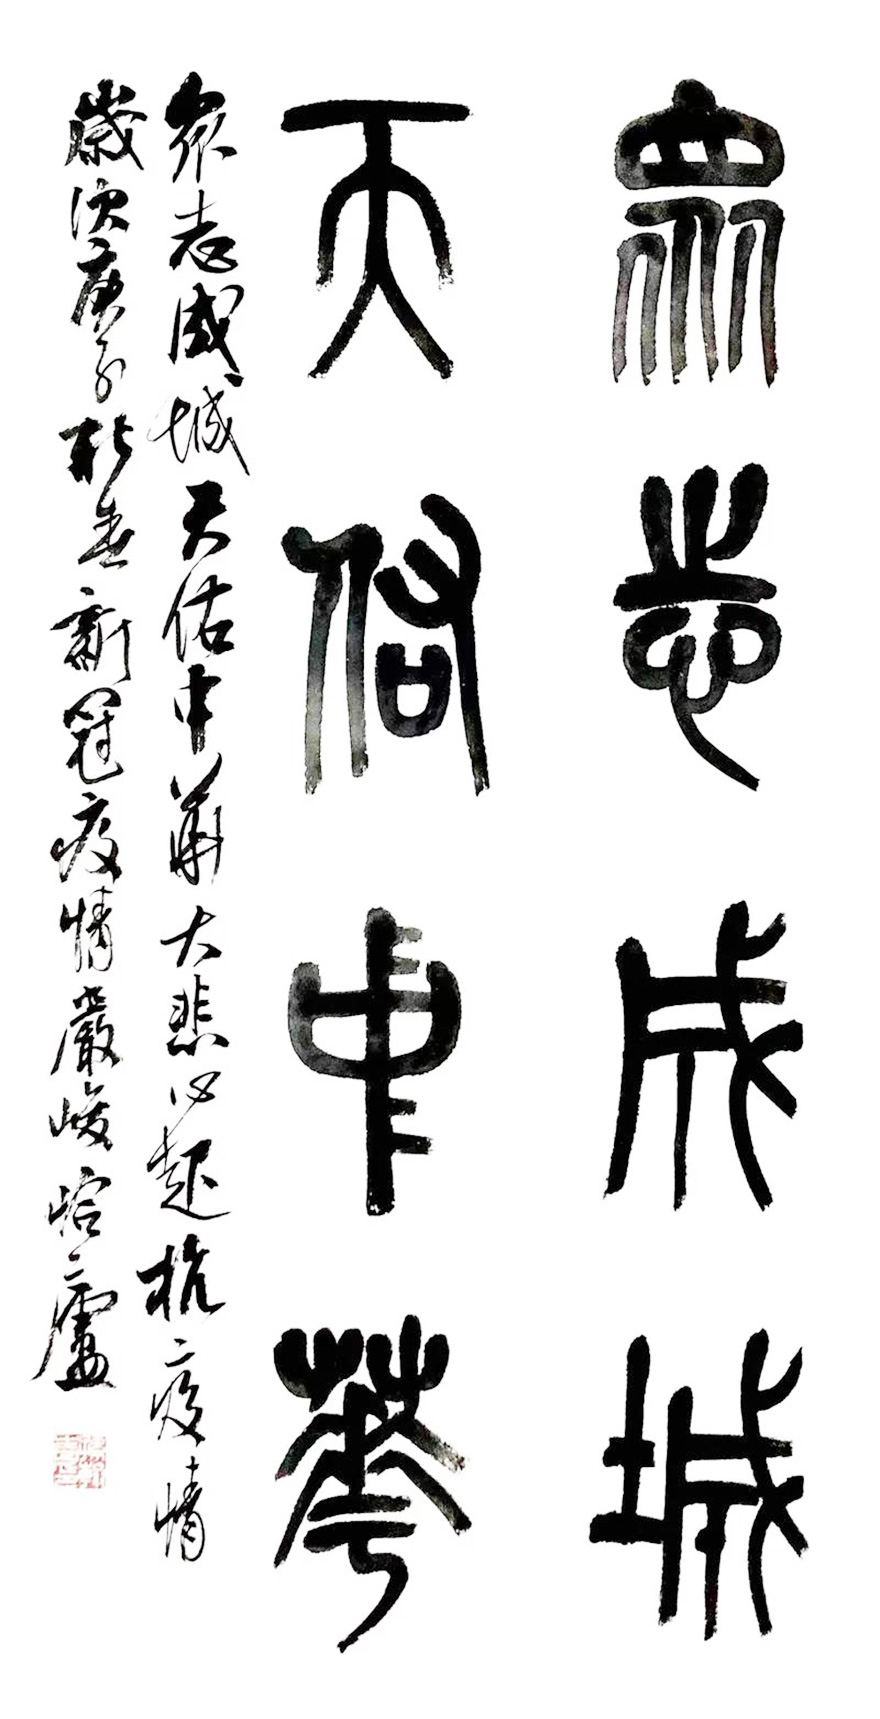 眾志成城
天佑中華
眾志成城天佑中華大悲心起抗疫情
歲次庚子新春新冠疫情嚴峻 盧